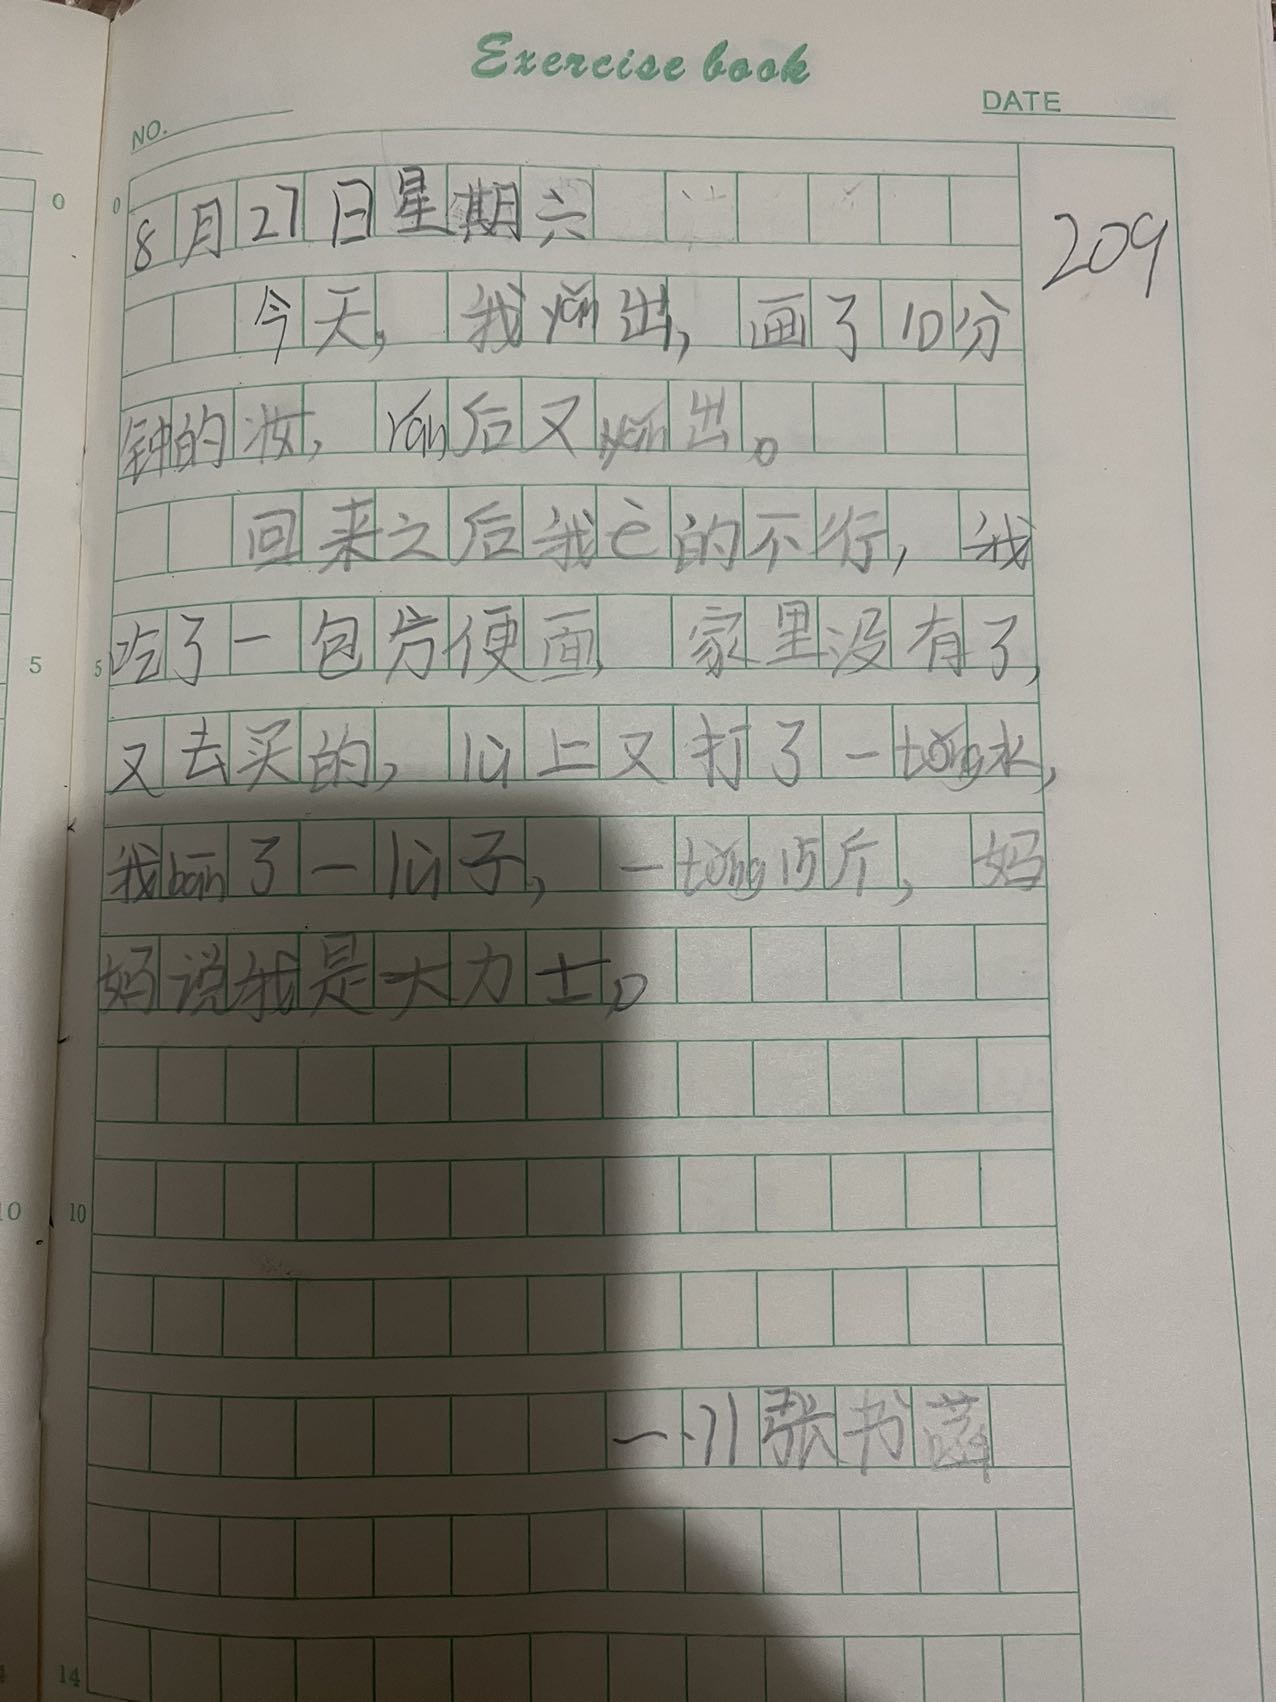 Exercise book
NO.
DATE
8月27日星期六
209
今天,我yǎn出,画了10分
钟的妆,rán后又yǎn出。
回来之后我è的不行,我
吃了一包方便面,家里没有了,
又去买的,lù上又打了一tǒng水,
我bān了一lù子,一tǒng15斤,妈
妈说我是大力士。
张书菡
0
5
10
14
0
5
10